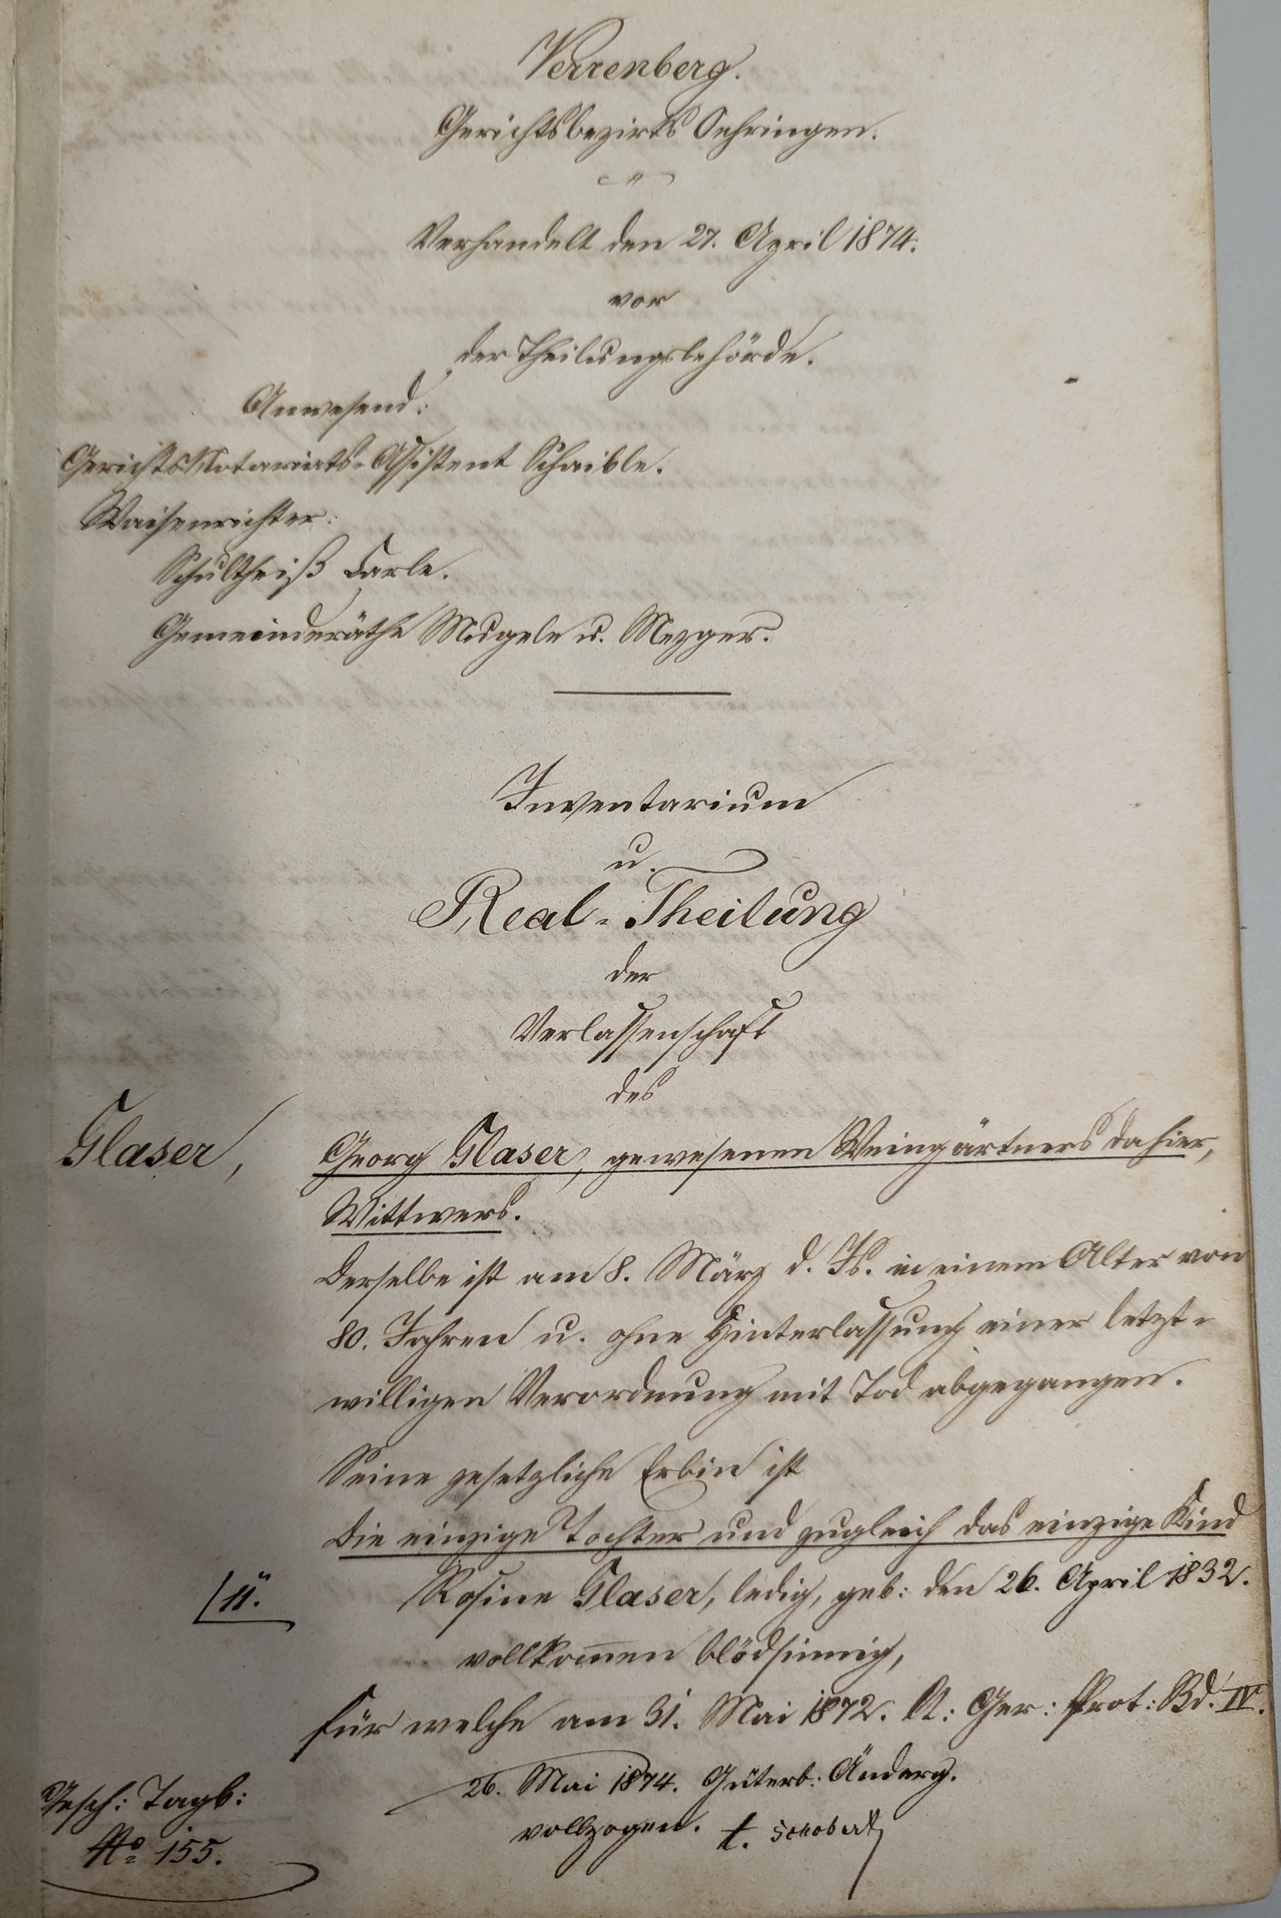 Verrenberg.
Gerichtsbezirks Oehringen.
Verhandelt den 27. April 1874.
vor
der Theilungsbehörde.
Anwesend:
Gerichts Notariats-Assistent Schaible.
Waisenrichter:
Schultheiß Carle.
Gemeinderäthe Mugele u. Mezger.
Inventarium
u.
Real-Theilung
der
Verlassenschaft
des
Glaser,
Georg Glaser, gewesenen Weingärtners dahier,
Wittwers.
Derselbe ist am 8. März d. Js. in einem Alter von
80. Jahren u. ohne Hinterlassung einer letzt-
willigen Verordnung mit Tod abgegangen.
Seine gesetzliche Erbin ist
die einzige Tochter und zugleich das einzige Kind
Rosine Glaser, ledig, geb: den 26. April 1832.
vollkom̄en blödsinnig,
für welche am 31. Mai 1872. W: Ger: Prot: Bd. IV.
26. Mai 1874. Güterb: Änderg.
vollzogen. t. Schobert
Gesch: Tagb:
No 155.